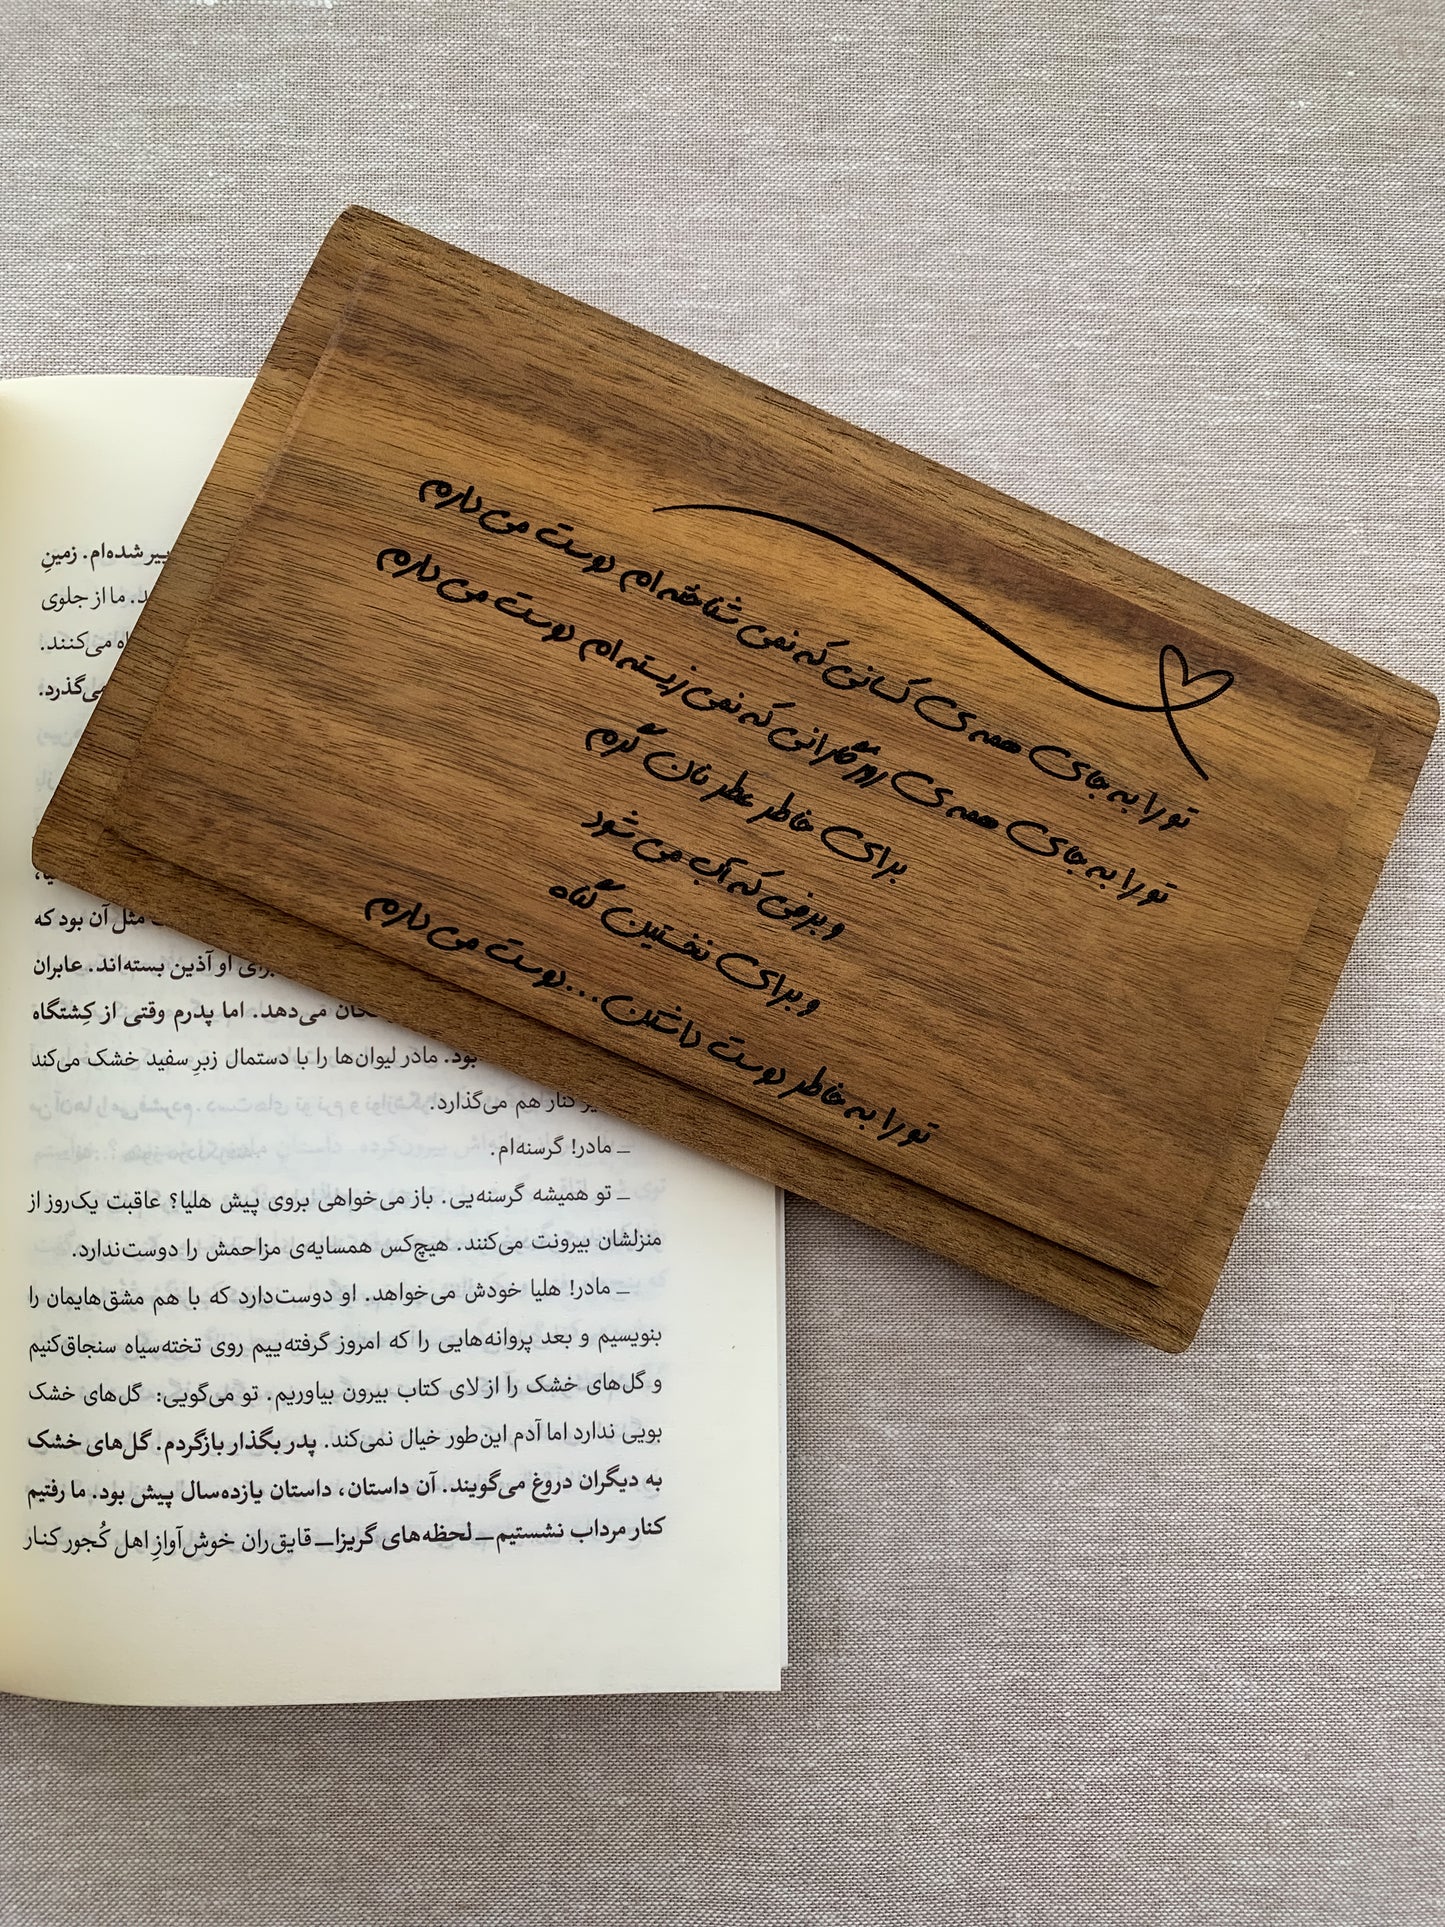 تو را به جای همه‌ی کسانی که نمی شناخته ام دوست می دارم
تو را به جای همه‌ی روزگارانی که نمی زیسته ام دوست می دارم
برای خاطر عطر نان گرم
و برفی که آب می شود
و برای نخستین گناه
تو را به خاطر دوست داشتن... دوست می دارم
پیر شده‌ام. زمینِ
ما از جلوی
می‌کنند.
می‌گذرد.
مثل آن بود که
برای او آذین بسته‌اند. عابران
تکان می‌دهد. اما پدرم وقتی از کِشتگاه
بود. مادر لیوان‌ها را با دستمال زبرِ سفید خشک می‌کند
کنار هم می‌گذارد.
ــ مادر! گرسنه‌ام.
ــ تو همیشه گرسنه‌یی. باز می‌خواهی بروی پیش هلیا؟ عاقبت یک‌روز از
منزلشان بیرونت می‌کنند. هیچ‌کس همسایه‌ی مزاحمش را دوست‌ندارد.
ــ مادر! هلیا خودش می‌خواهد. او دوست‌دارد که با هم مشق‌هایمان را
بنویسیم و بعد پروانه‌هایی را که امروز گرفته‌ییم روی تخته‌سیاه سنجاق‌کنیم
و گل‌های خشک را از لای کتاب بیرون بیاوریم. تو می‌گویی: گل‌های خشک
بویی ندارد اما آدم این‌طور خیال نمی‌کند. پدر بگذار بازگردم. گل‌های خشک
به دیگران دروغ می‌گویند. آن داستان، داستان یازده‌سال پیش بود. ما رفتیم
کنار مرداب نشستیم ــ لحظه‌های گریزا ــ قایق‌ران خوش‌آوازِ اهل کُجور کنار